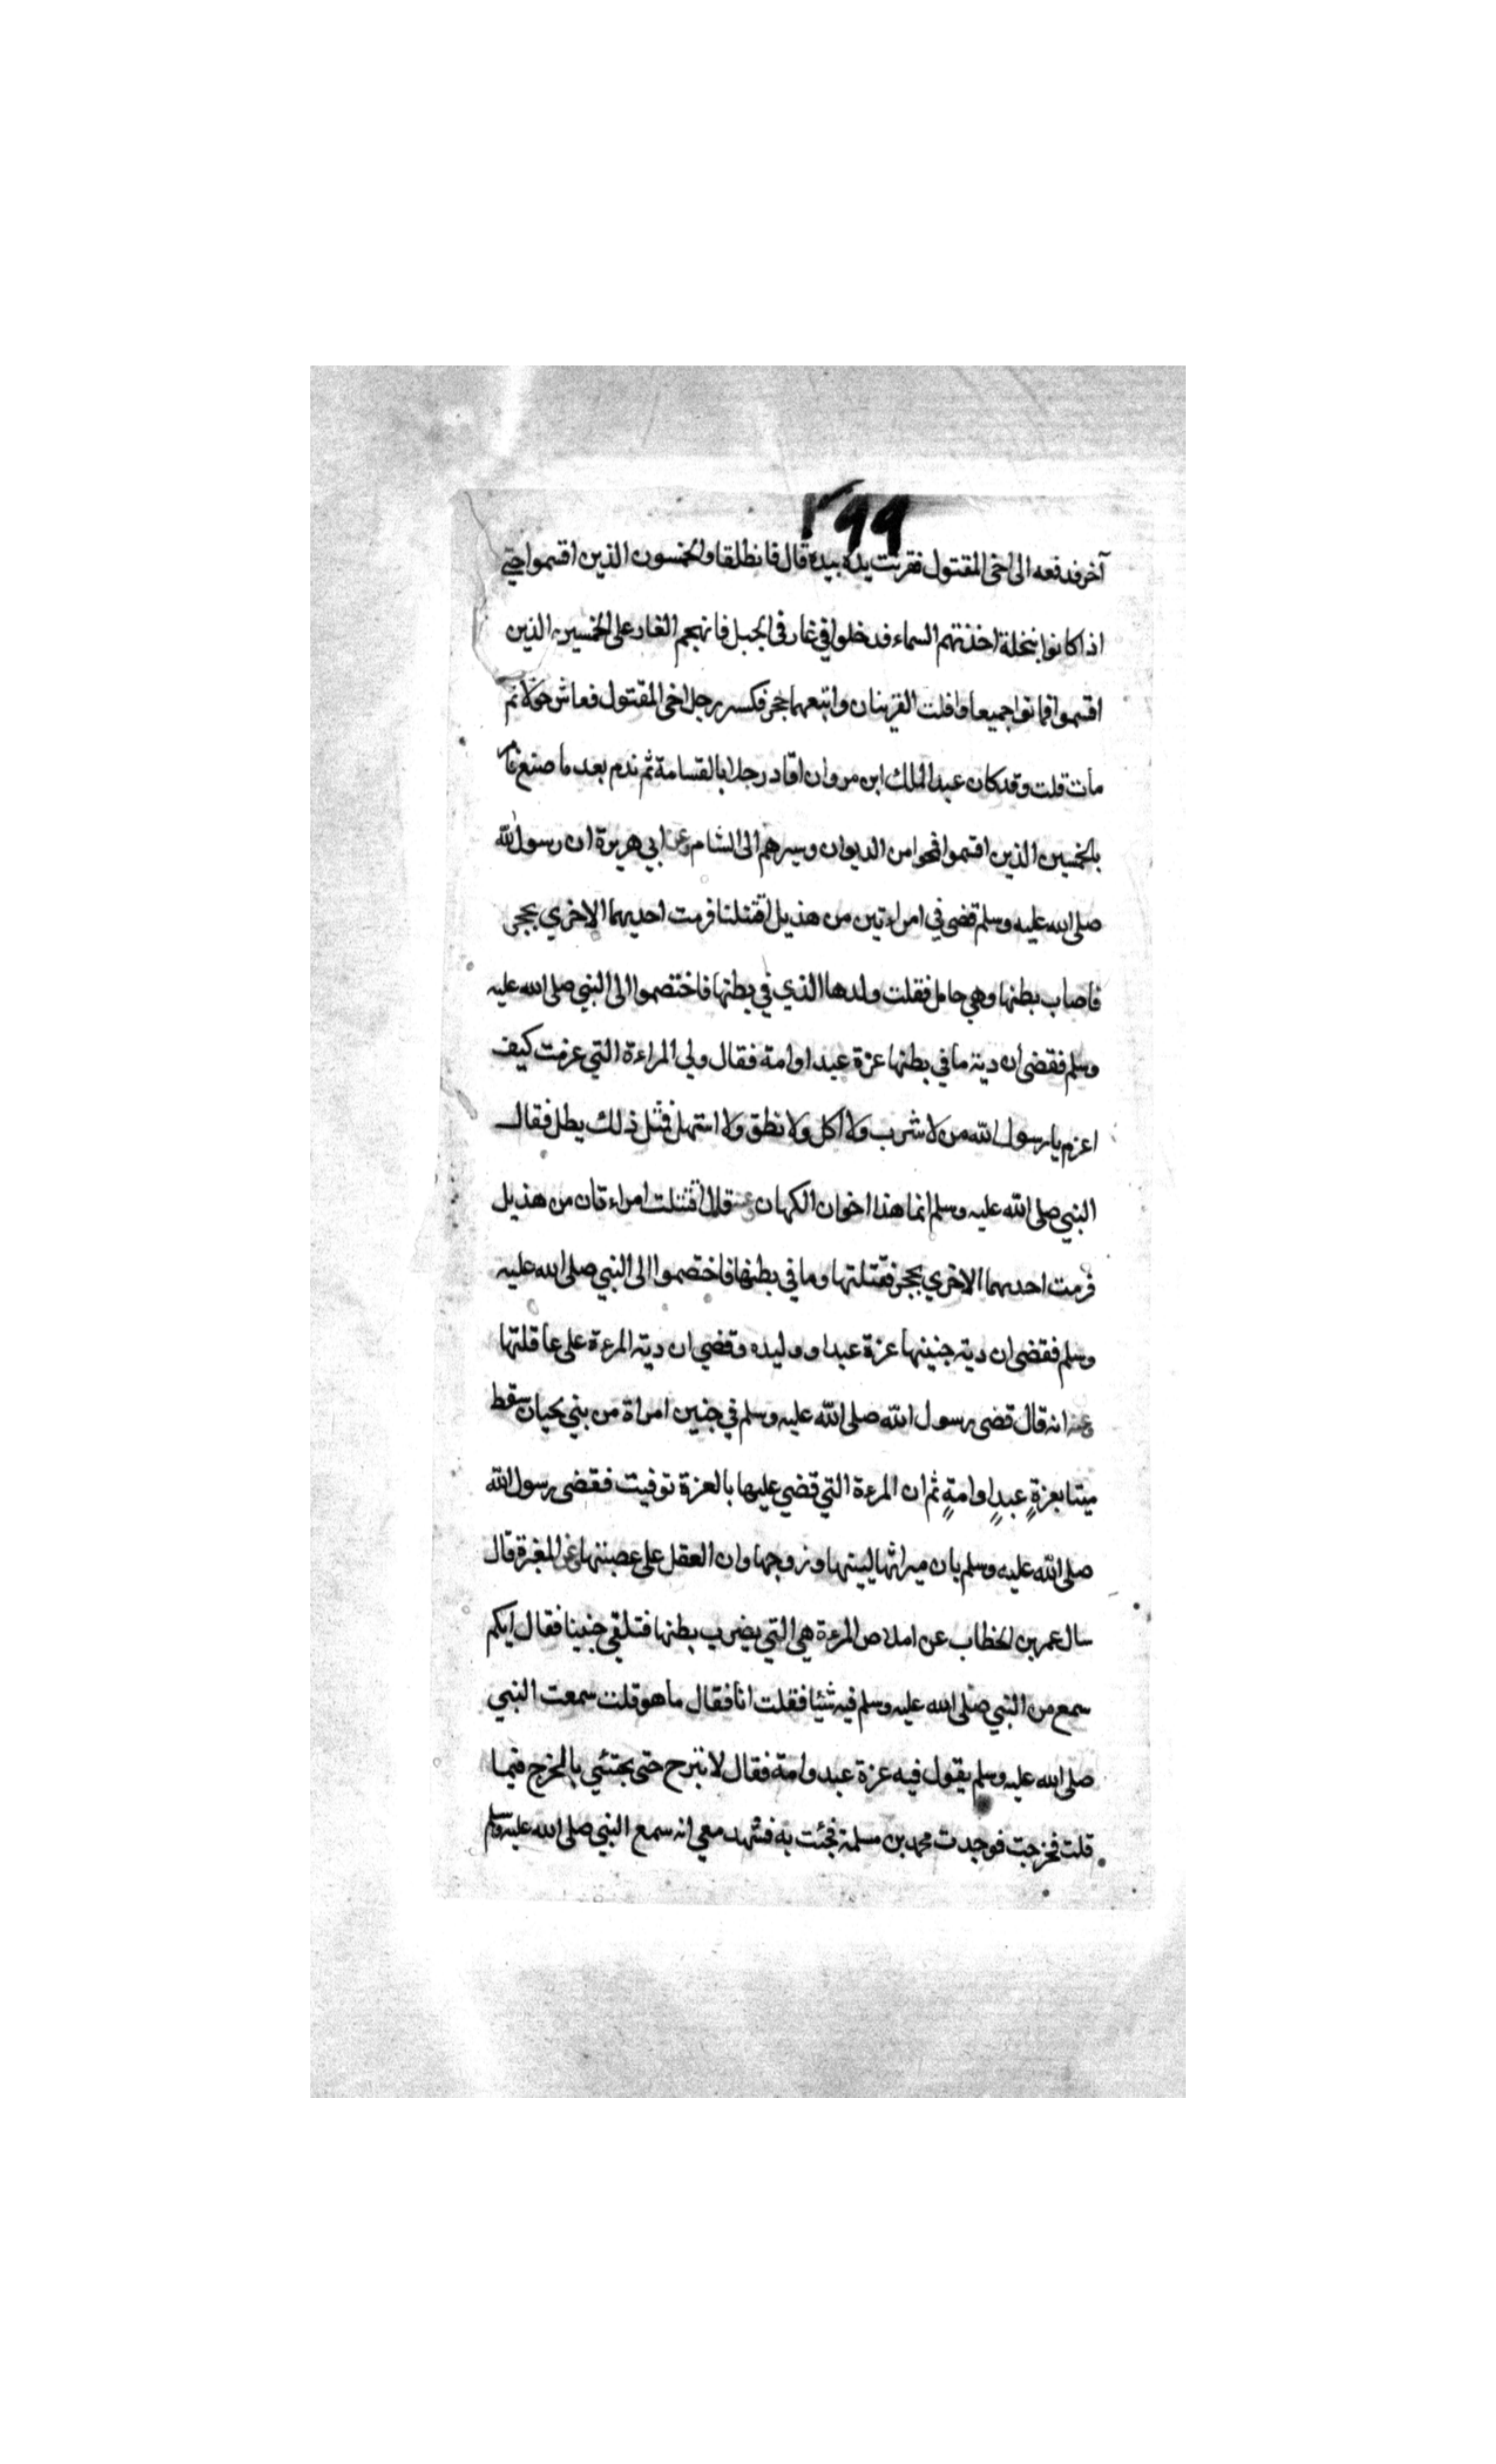 ١٩٩
آخر فدفعه الى اخى المقتول فقرنت يده بيده قال فانطلقا والخمسون الذين اقسموا حتى
اذا كانوا بنخلة اخذتهم السماء فدخلوا في غار في الجبل فانهجم الغار على الخمسين الذين
اقسموا فماتوا جميعا وافلت القرينان واتبعهما حجر فكسر رجل اخى المقتول فعاش حولا ثم
مات قلت وقد كان عبد الملك ابن مروان اقاد رجلا بالقسامة ثم ندم بعد ما صنع فامر
بالخمسين الذين اقسموا فمحوا من الديوان وسيرهم الى الشام وعن ابي هريرة ان رسول الله
صلى الله عليه وسلم قضى في امراءتين من هذيل اقتتلتا فرمت احديهما الاخري بحجر
فاصاب بطنها وهي حامل فقلت ولدها الذي في بطنها فاختصموا الى النبي صلى الله عليه
وسلم فقضى ان دية ما في بطنها عزة عبد او امة فقال ولي المراءة التي عزمت كيف
اعزم يا رسول الله من لا شرب ولا اكل ولا نطق ولا استهل فمثل ذلك يطل فقال
النبي صلى الله عليه وسلم انما هذا اخوان الكهان عنه قال اقتتلت امراءتان من هذيل
فرمت احديهما الاخري بحجر فقتلتها وما في بطنها فاختصموا الى النبي صلى الله عليه
وسلم فقضى ان دية جنينها عزة عبد او وليده وقضي ان دية المرءة على عاقلتها
عنه انه قال قضى رسول الله صلى الله عليه وسلم في جنين امراة من بني لحيان سقط
ميتا بعزةٍ عبدٍ او امةٍ ثم ان المرءة التي قضي عليها بالعزة توفيت فقضى رسول الله
صلى الله عليه وسلم بان ميراثها لبينها وزوجها وان العقل على عصبتها عن المغيرة قال
سال عمر بن الخطاب عن املاص المرءة هي التي يضرب بطنها فتلقي جنينا فقال ايكم
سمع من النبي صلى الله عليه وسلم فيه شيئا فقلت انا فقال ما هو قلت سمعت النبي
صلى الله عليه وسلم يقول فيه عزة عبد وامة فقال لا تبرح حتى يجتئي بالمخرج فيما
قلت فخرجت فوجدت محمد بن مسلمة فجئت به فشهد معي انه سمع النبي صلى الله عليه وسلم